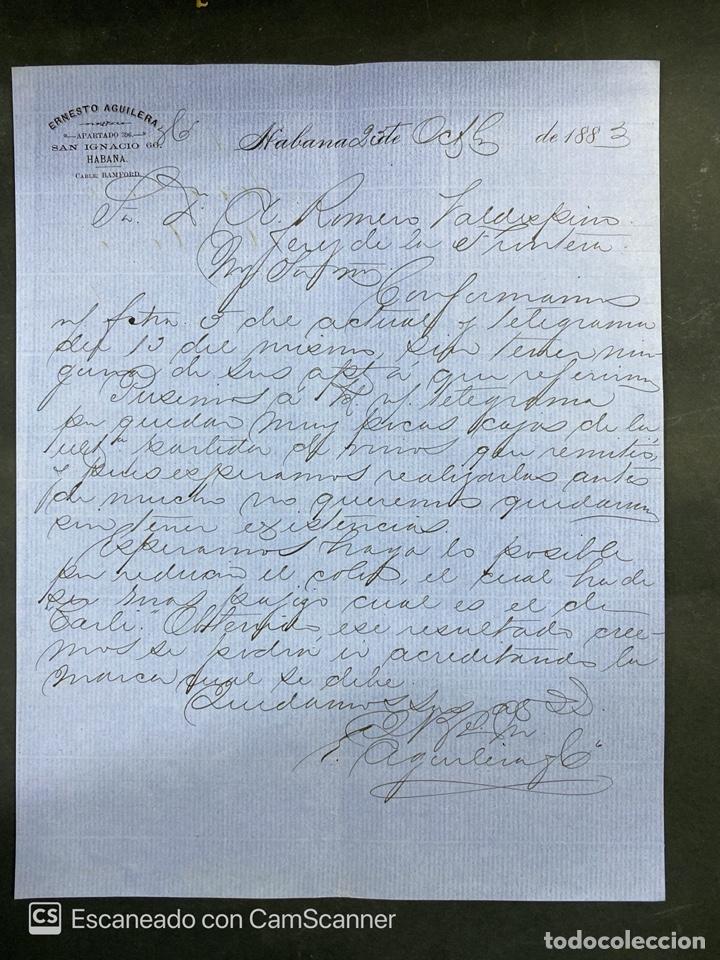 ERNESTO AGUILERA y Ca
APARTADO 396.
SAN IGNACIO 60.
HABANA.
CABLE: BAMFORD.
Habana 23 de Octbre de 1883
Sr. Dn. A. Romero Valdespino
Jerez de la Frontera.
Muy Sor. nro.
Confirmamos
n/ fcha. 5 del actual y telegrama
del 13 del mismo, sin tener nin-
guna de sus aptas. á que referirnos
Pusimos á Vd n/ telegrama
por quedar muy pocas cajas de la
ulta. partida de vinos que remitió,
y pues esperamos realizarlas antes
de mucho no queremos quedarnos
sin tener existencias.
Esperamos haga lo posible
por reducir el color, el cual ha de
ser mas bajo cual es el de
Obtenido ese resultado cree-
mos se podrá ir acreditando la
marca cual se debe.
Quedamos sus
E. Aguilera y Ca
CS Escaneado con CamScanner
todocoleccion